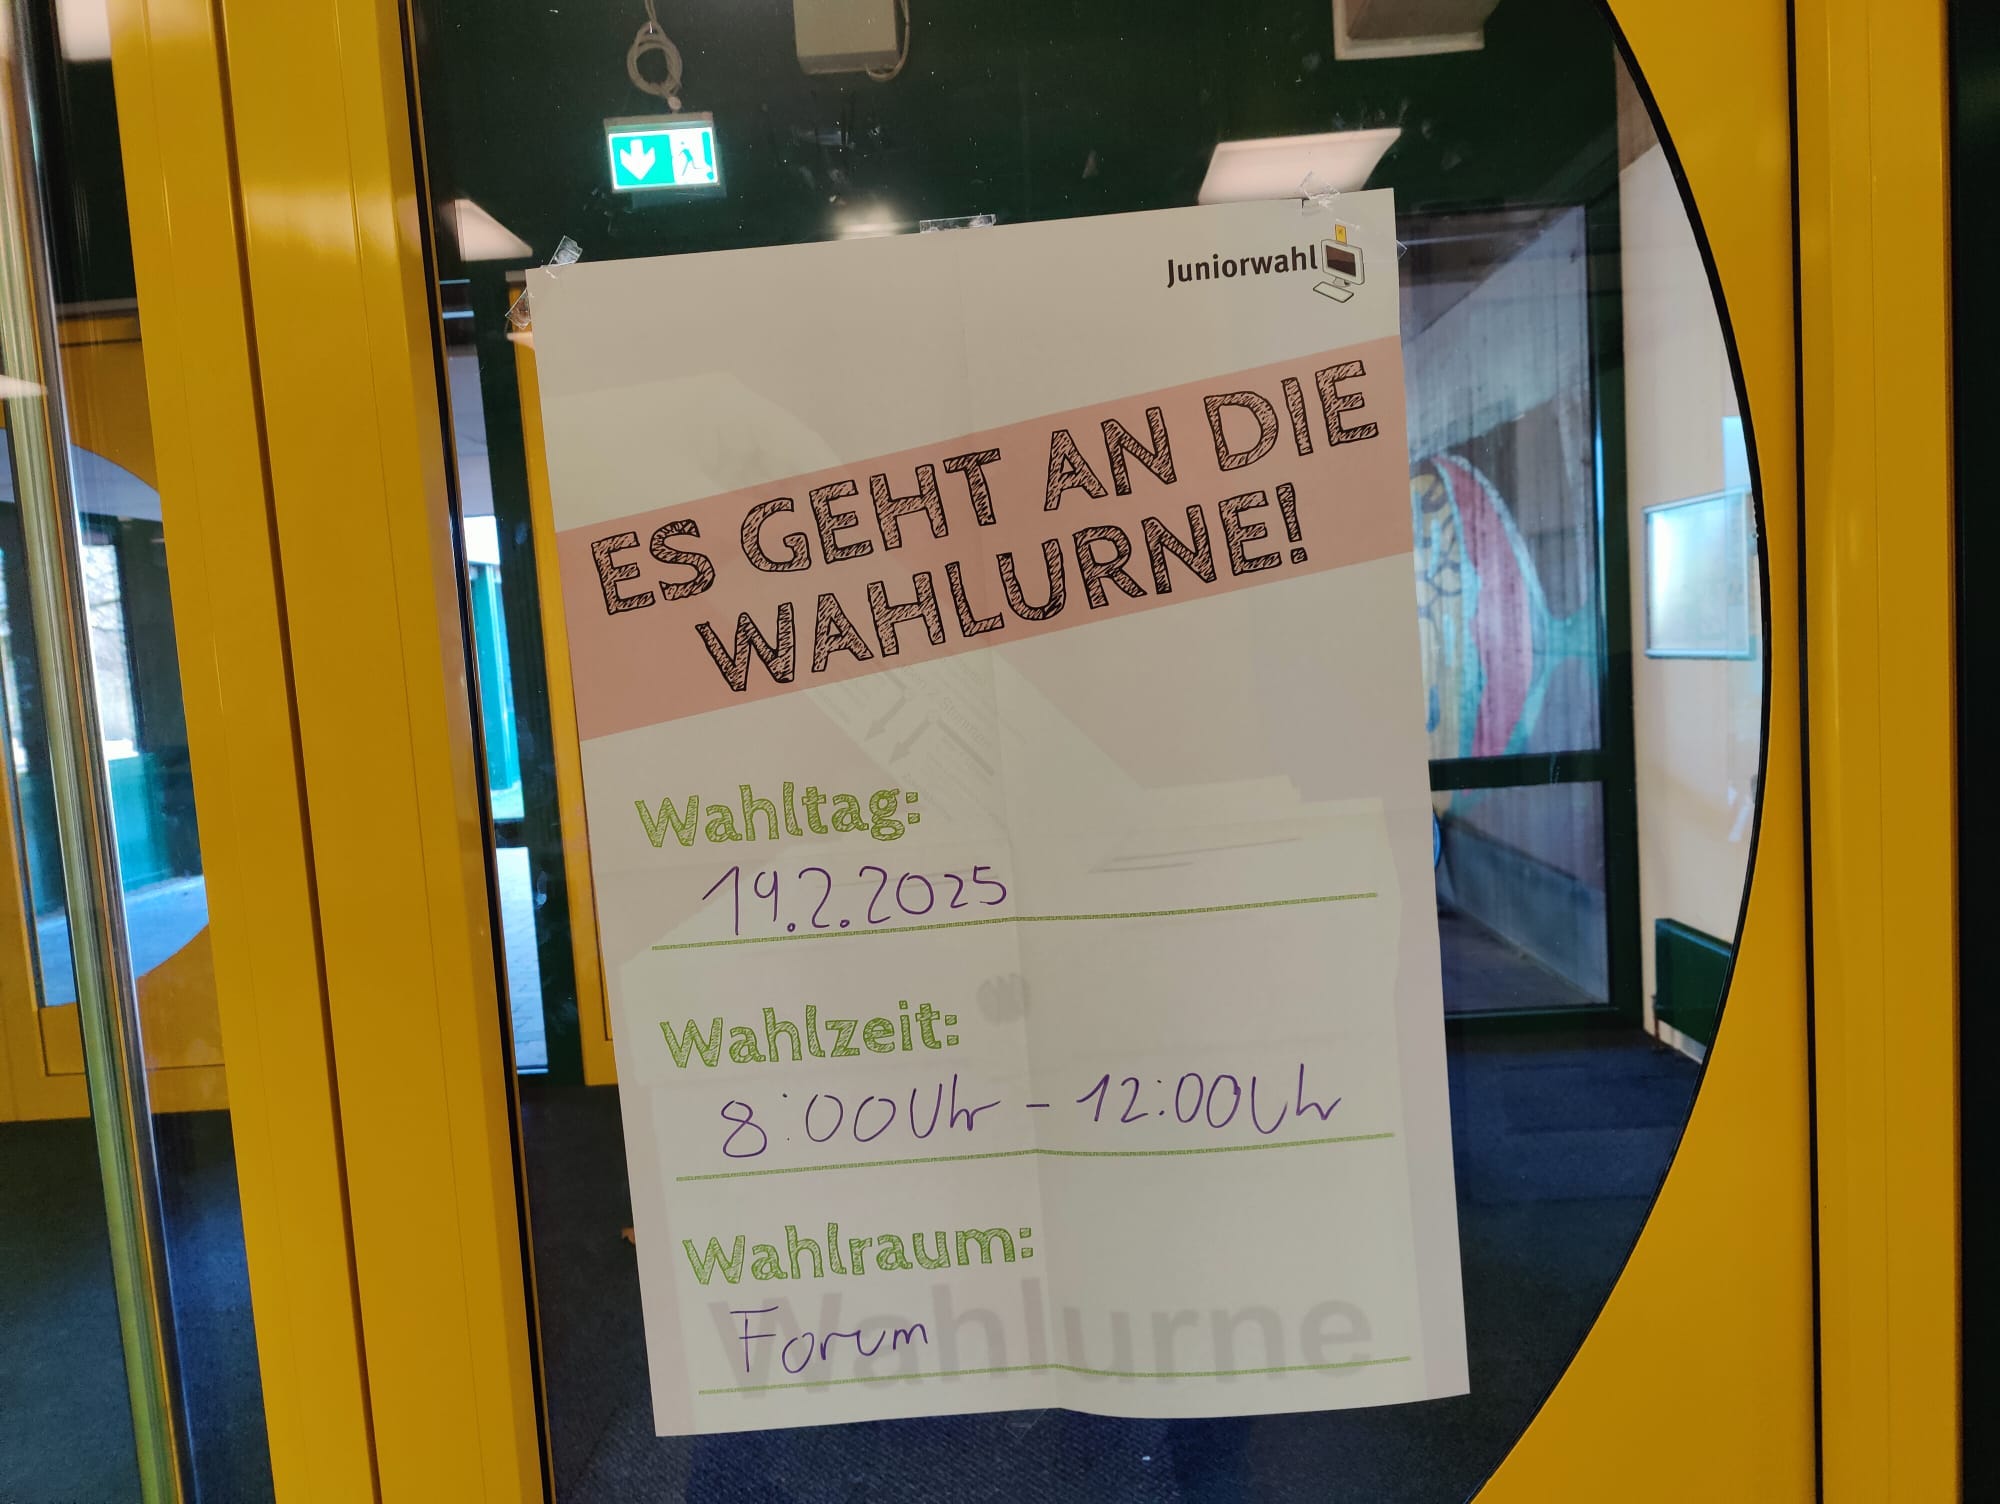 Juniorwahl
ES GEHT AN DIE
WAHLURNE!
Wahltag:
19.2.2025
Wahlzeit:
8:00 Uhr - 12:00 Uhr
Wahlraum:
Forum
Wahlurne